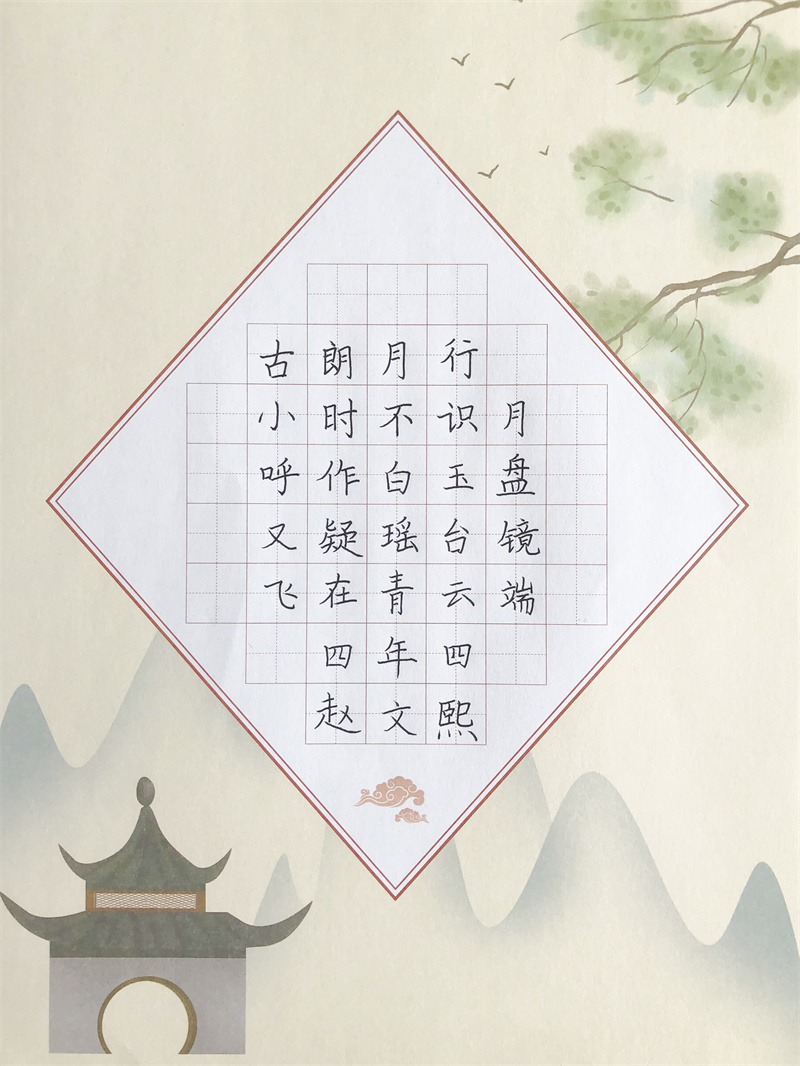 古朗月行
小时不识月
呼作白玉盘
又疑瑶台镜
飞在青云端
四年四
赵文熙